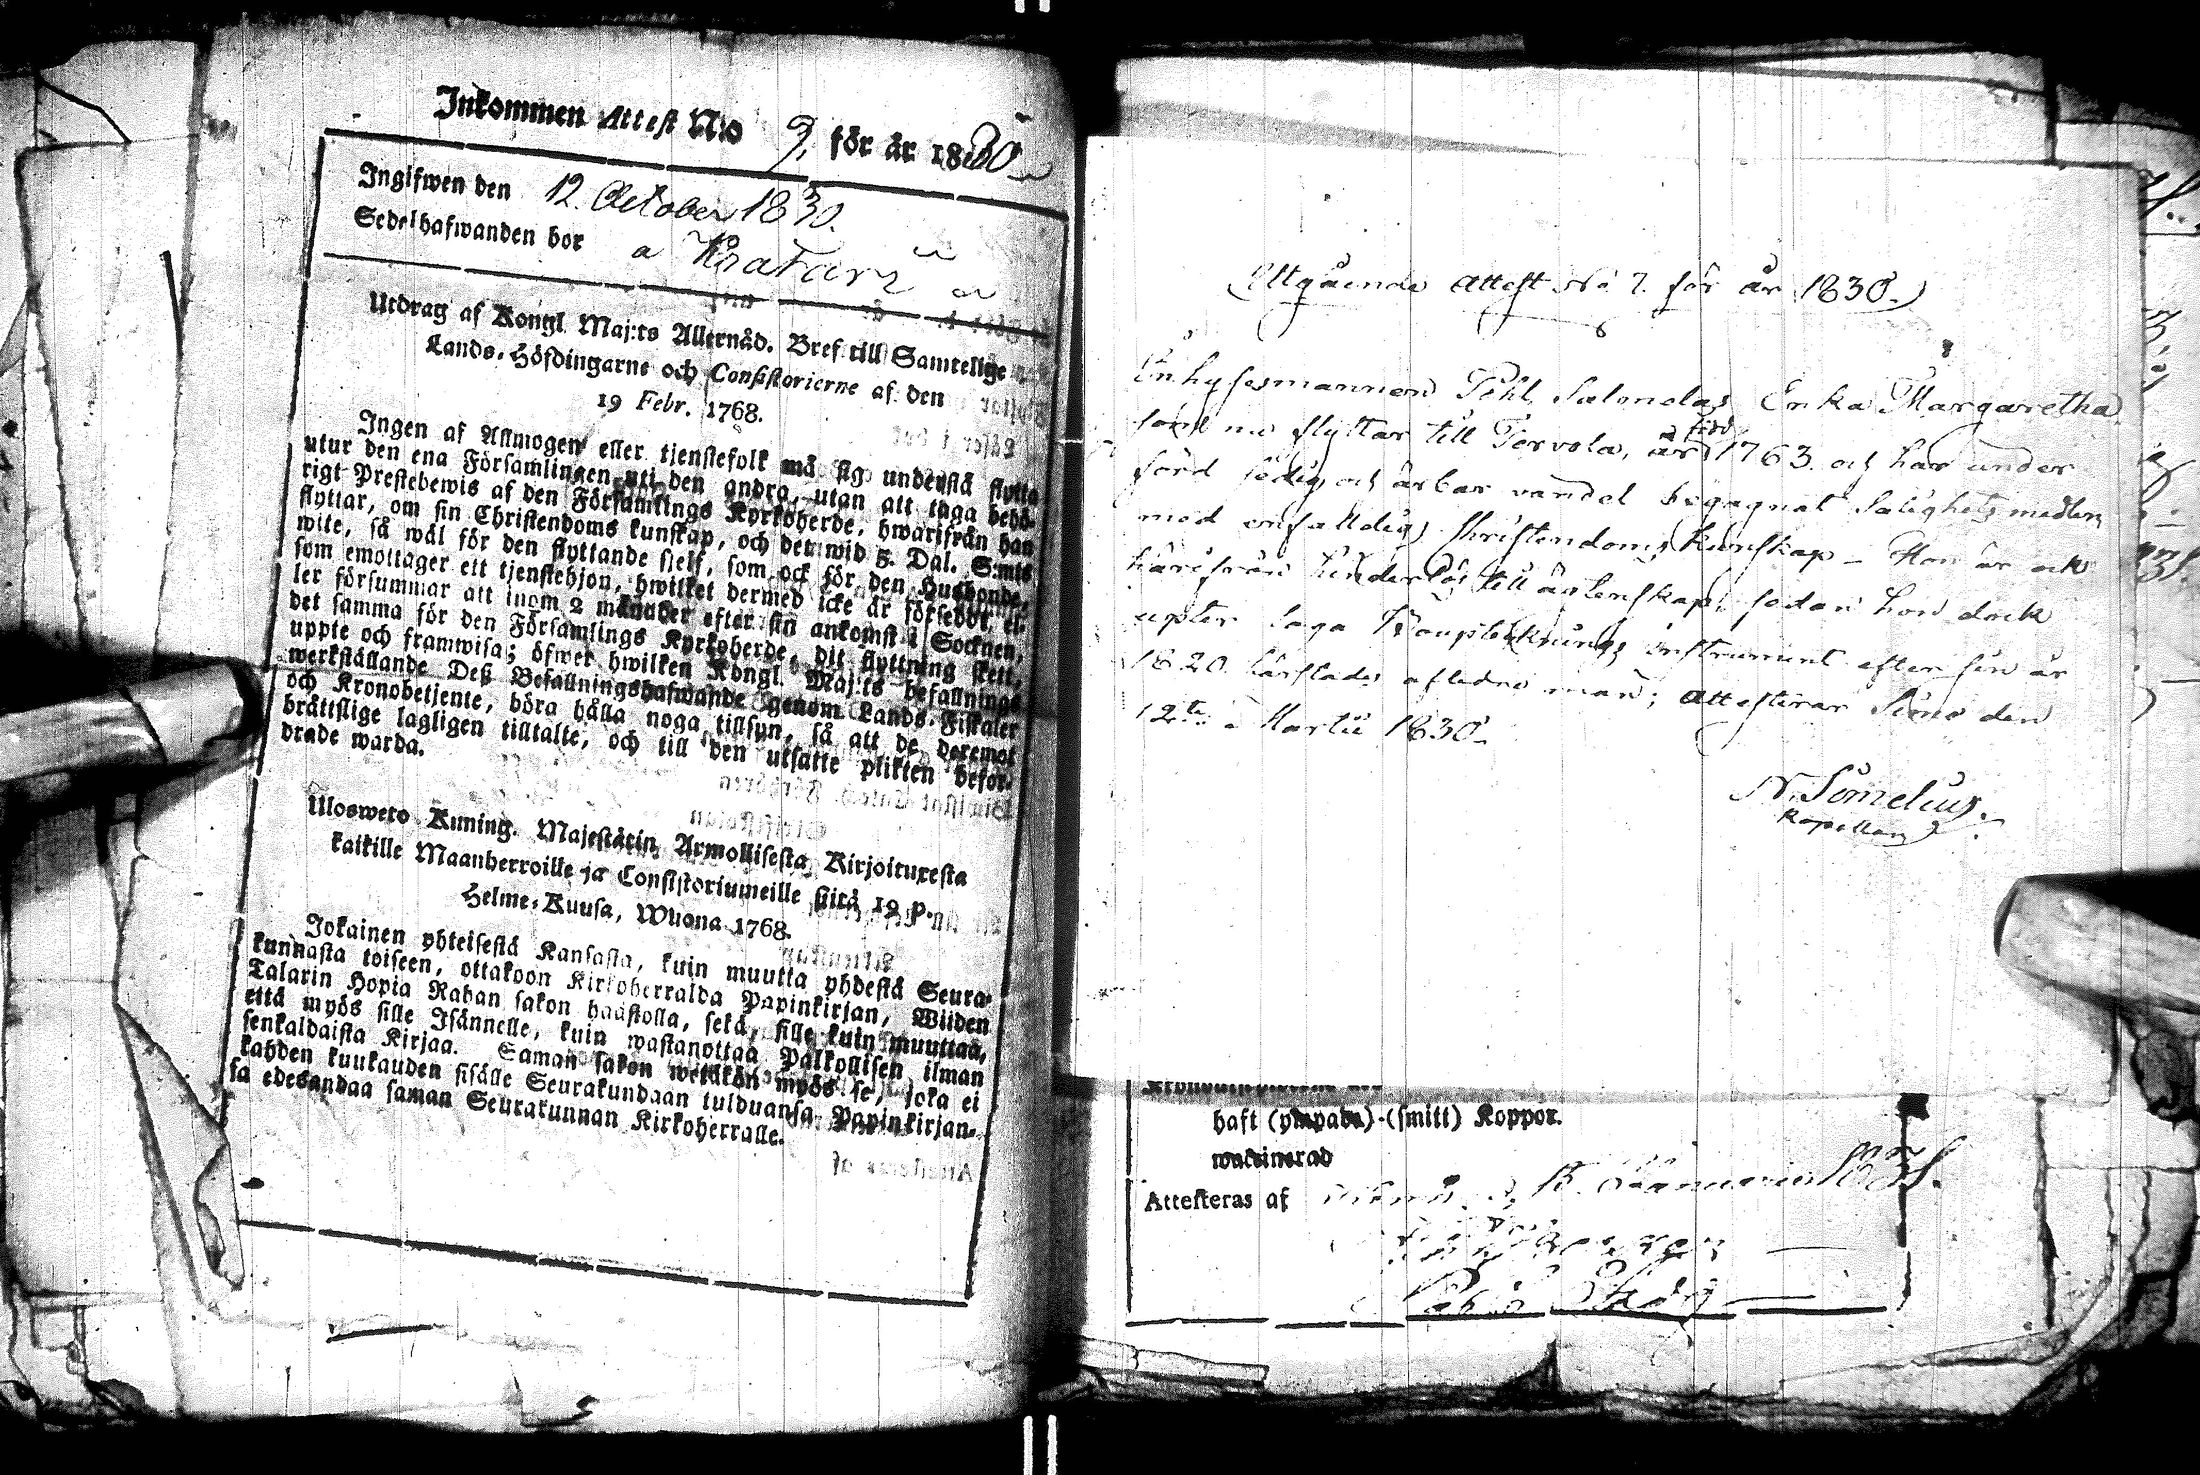 Inkommen Attest No 9. för år 1830
Ingifwen den 12. October 1830.
Sedelhafwanden bor a
Utdrag af Kongl. Maj:ts Allernåd. Bref till Samtelige
Lands-Höfdingarne och Consistorierne af den
19 Febr. 1768.
Ingen af Allmogen eller tjenstefolk må sig understå flytta
utur den ena Församlingen uti den andra, utan att taga behö-
rigt Prestebewis af den Församlings Kyrkoherde, hwarifrån han
flyttar, om sin Christendoms kunskap, och det wid 5. Dal. S:mts
wite, så wäl för den flyttande sielf, som ock för den Husbonde,
som emottager ett tjenstehjon, hwilket dermed icke är förseddt, el-
ler försummar att inom 2 månader efter sin ankomst i Socknen,
det samma för den Församlings Kyrkoherde, dit flyttning skett,
uppte och framwisa; öfwer hwilken Kongl. Maj:ts befallnings
werkställande Deß Befallningshafwande genom Lands-Fiskaler
och Kronobetjente, böra hålla noga tillsyn, så att de deremot
bråttslige lagligen tilltalte, och till den utsatte plikten befor-
drade warda.
Uloswero Kuning. Majestätin Armollisesta Kirjoituxesta
kaikille Maanherroille ja Consistoriumeille siitä 19 p.
Helme-Kuusa, Wuona 1768.
Jokainen yhteisestä Kansasta, kuin muutta yhdestä Seura-
kunnasta toiseen, ottakoon Kirkoherralda Papinkirjan, Wiiden
Talarin Hopia Rahan sakon haastolla, sekä sille kuin muuttaa,
että myös sille Isännelle, kuin wastanottaa Palkollisen ilman
senkaldaista Kirjaa. Saman sakon wetäkön myös se, joka ei
kahden kuukauden sisälle Seurakundaan tulduansa Papinkirjan-
sa edesandaa saman Seurakunnan Kirkoherralle.
Utgående Attest No 7. för år 1830.
Enhysesmannen Pehl Salmelas Enka Margaretha
som nu flyttar till Tervola, är född 1763. och har under
förd sedig och ärbar vandel begagnat Salighets medlen
med enfalldig Christendoms kunskap - Hon är ock
härifrån hinderlös till ägtenskap, sedan hon dock
upter laga instrument efter sin år
1820. härstädes aflidne man; Attesterar Simo den
12te Martii 1830.
N. Simelius.
Kapellan
haft (ympade) (smitt) Koppor.
waccinerad
Attesteras af 1831.